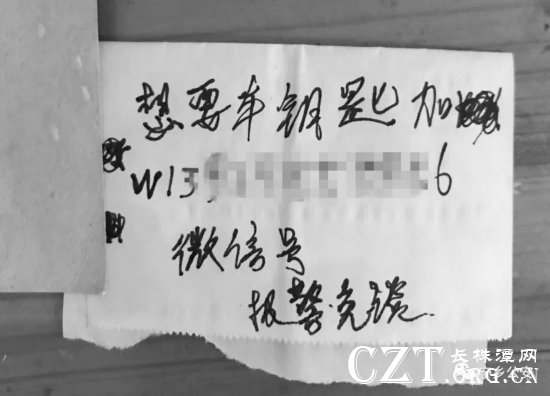 想要车钥匙加
W13 6
微信号
报警免谈.
CZT 长株潭网
.ORG.CN